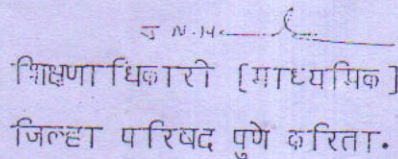 शिक्षणाधिकारी (माध्यमिक)
जिल्हा परिषद पुणे करिता.